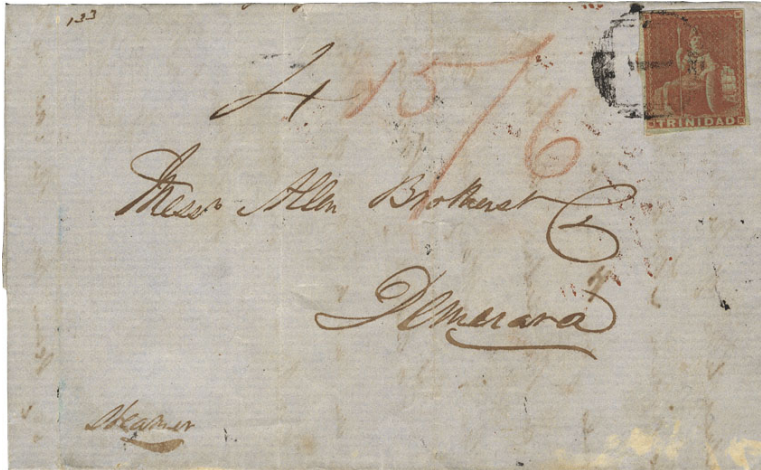 133
4 15/6
TRINIDAD
Messrs Allen Brothers & Co
Demerara
Steamer